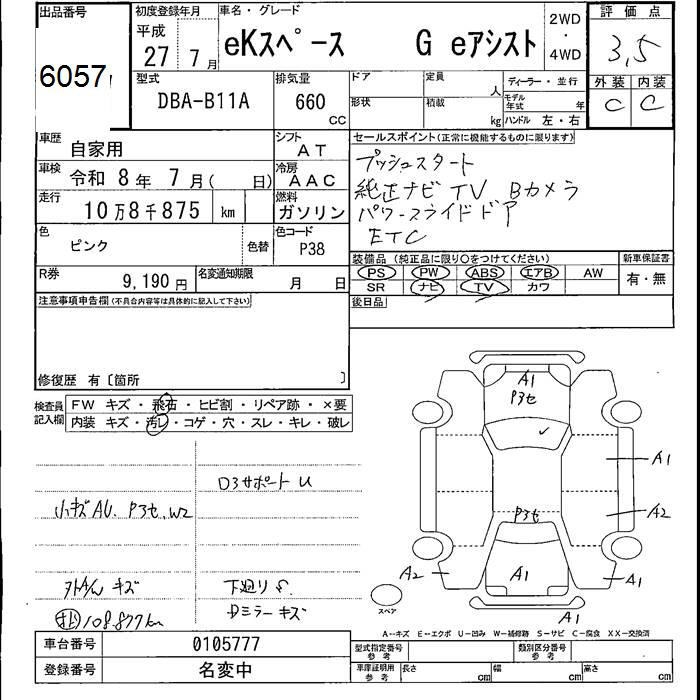 出品番号
6057
初度登録年月
平成
27 7月
車名・グレード
eKスペース G eアシスト
2WD
・
4WD
評価点
3.5
型式
DBA-B11A
排気量
660
CC
ドア
定員
人
形状
積載
kg
ディーラー・並行
モデル年式
年
ハンドル 左・右
外装 内装
C C
車歴
自家用
シフト
AT
車検
令和 8年 7月( 日)
冷房
AAC
走行
10万8千875 km
燃料
ガソリン
色
ピンク
色替
色コード
P38
R券
9,190円
名変通知期限
月 日
セールスポイント(正常に機能するものに限ります)
プッシュスタート
純正ナビ TV Bカメラ
パワースライドドア
ETC
装備品(純正品に限り○をつけてください)
PS PW ABS エアB AW
SR ナビ TV カワ
新車保証書
有・無
後日品
注意事項申告欄(不具合内容等は具体的に記入して下さい)
修復歴 有〔箇所 〕
検査員
記入欄
FW キズ・飛石・ヒビ割・リペア跡・×要
内装 キズ・汚レ・コゲ・穴・スレ・キレ・破レ
D3サポート U
小キズAU、P3セ、W2
キズ
下廻りS
Dミラーキズ
108.877km
A1
P3セ
✓
A1
P3セ
A2
A2
A1
A1
A1
スペア
A--キズ E--エクボ U--凹み W--補修跡 S--サビ C--腐食 XX--交換済
車台番号
0105777
登録番号
名変中
型式指定番号
参考
類別区分番号
参考
車庫証明用
参考
長さ cm
幅 cm
高さ cm